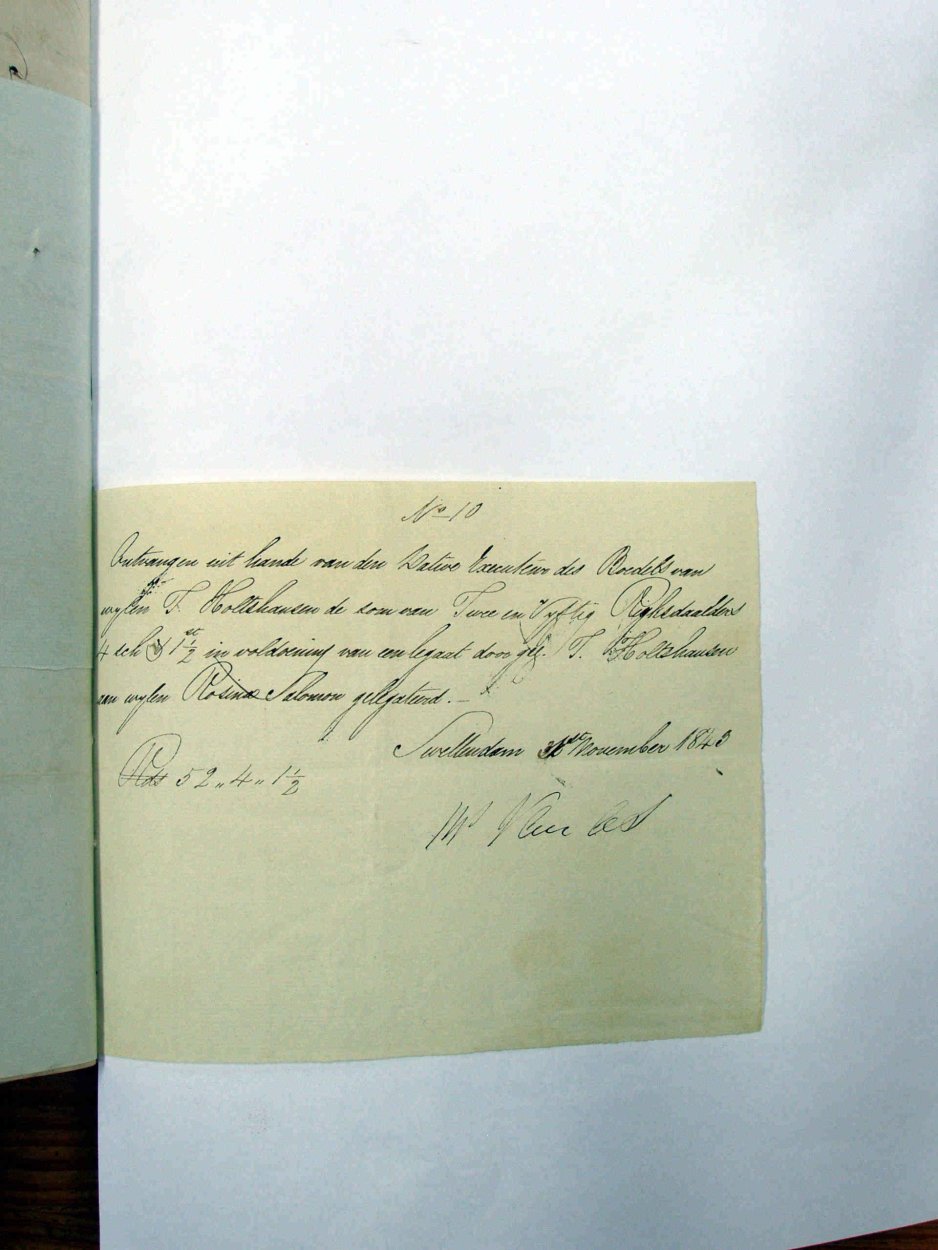 No 10
Ontvangen uit hande van den Dative Executeur des Boedels van
wylen T. Holtshausen de som van Twee en Vyftig Ryksdaalders
4 sch 1 1/2 st in voldoening van een legaat door gez. T. Holtshausen
aan wylen Rosina Salomon gelegateerd. _
Swellendam November 1843
Rds 52 „ 4 „ 1 1/2